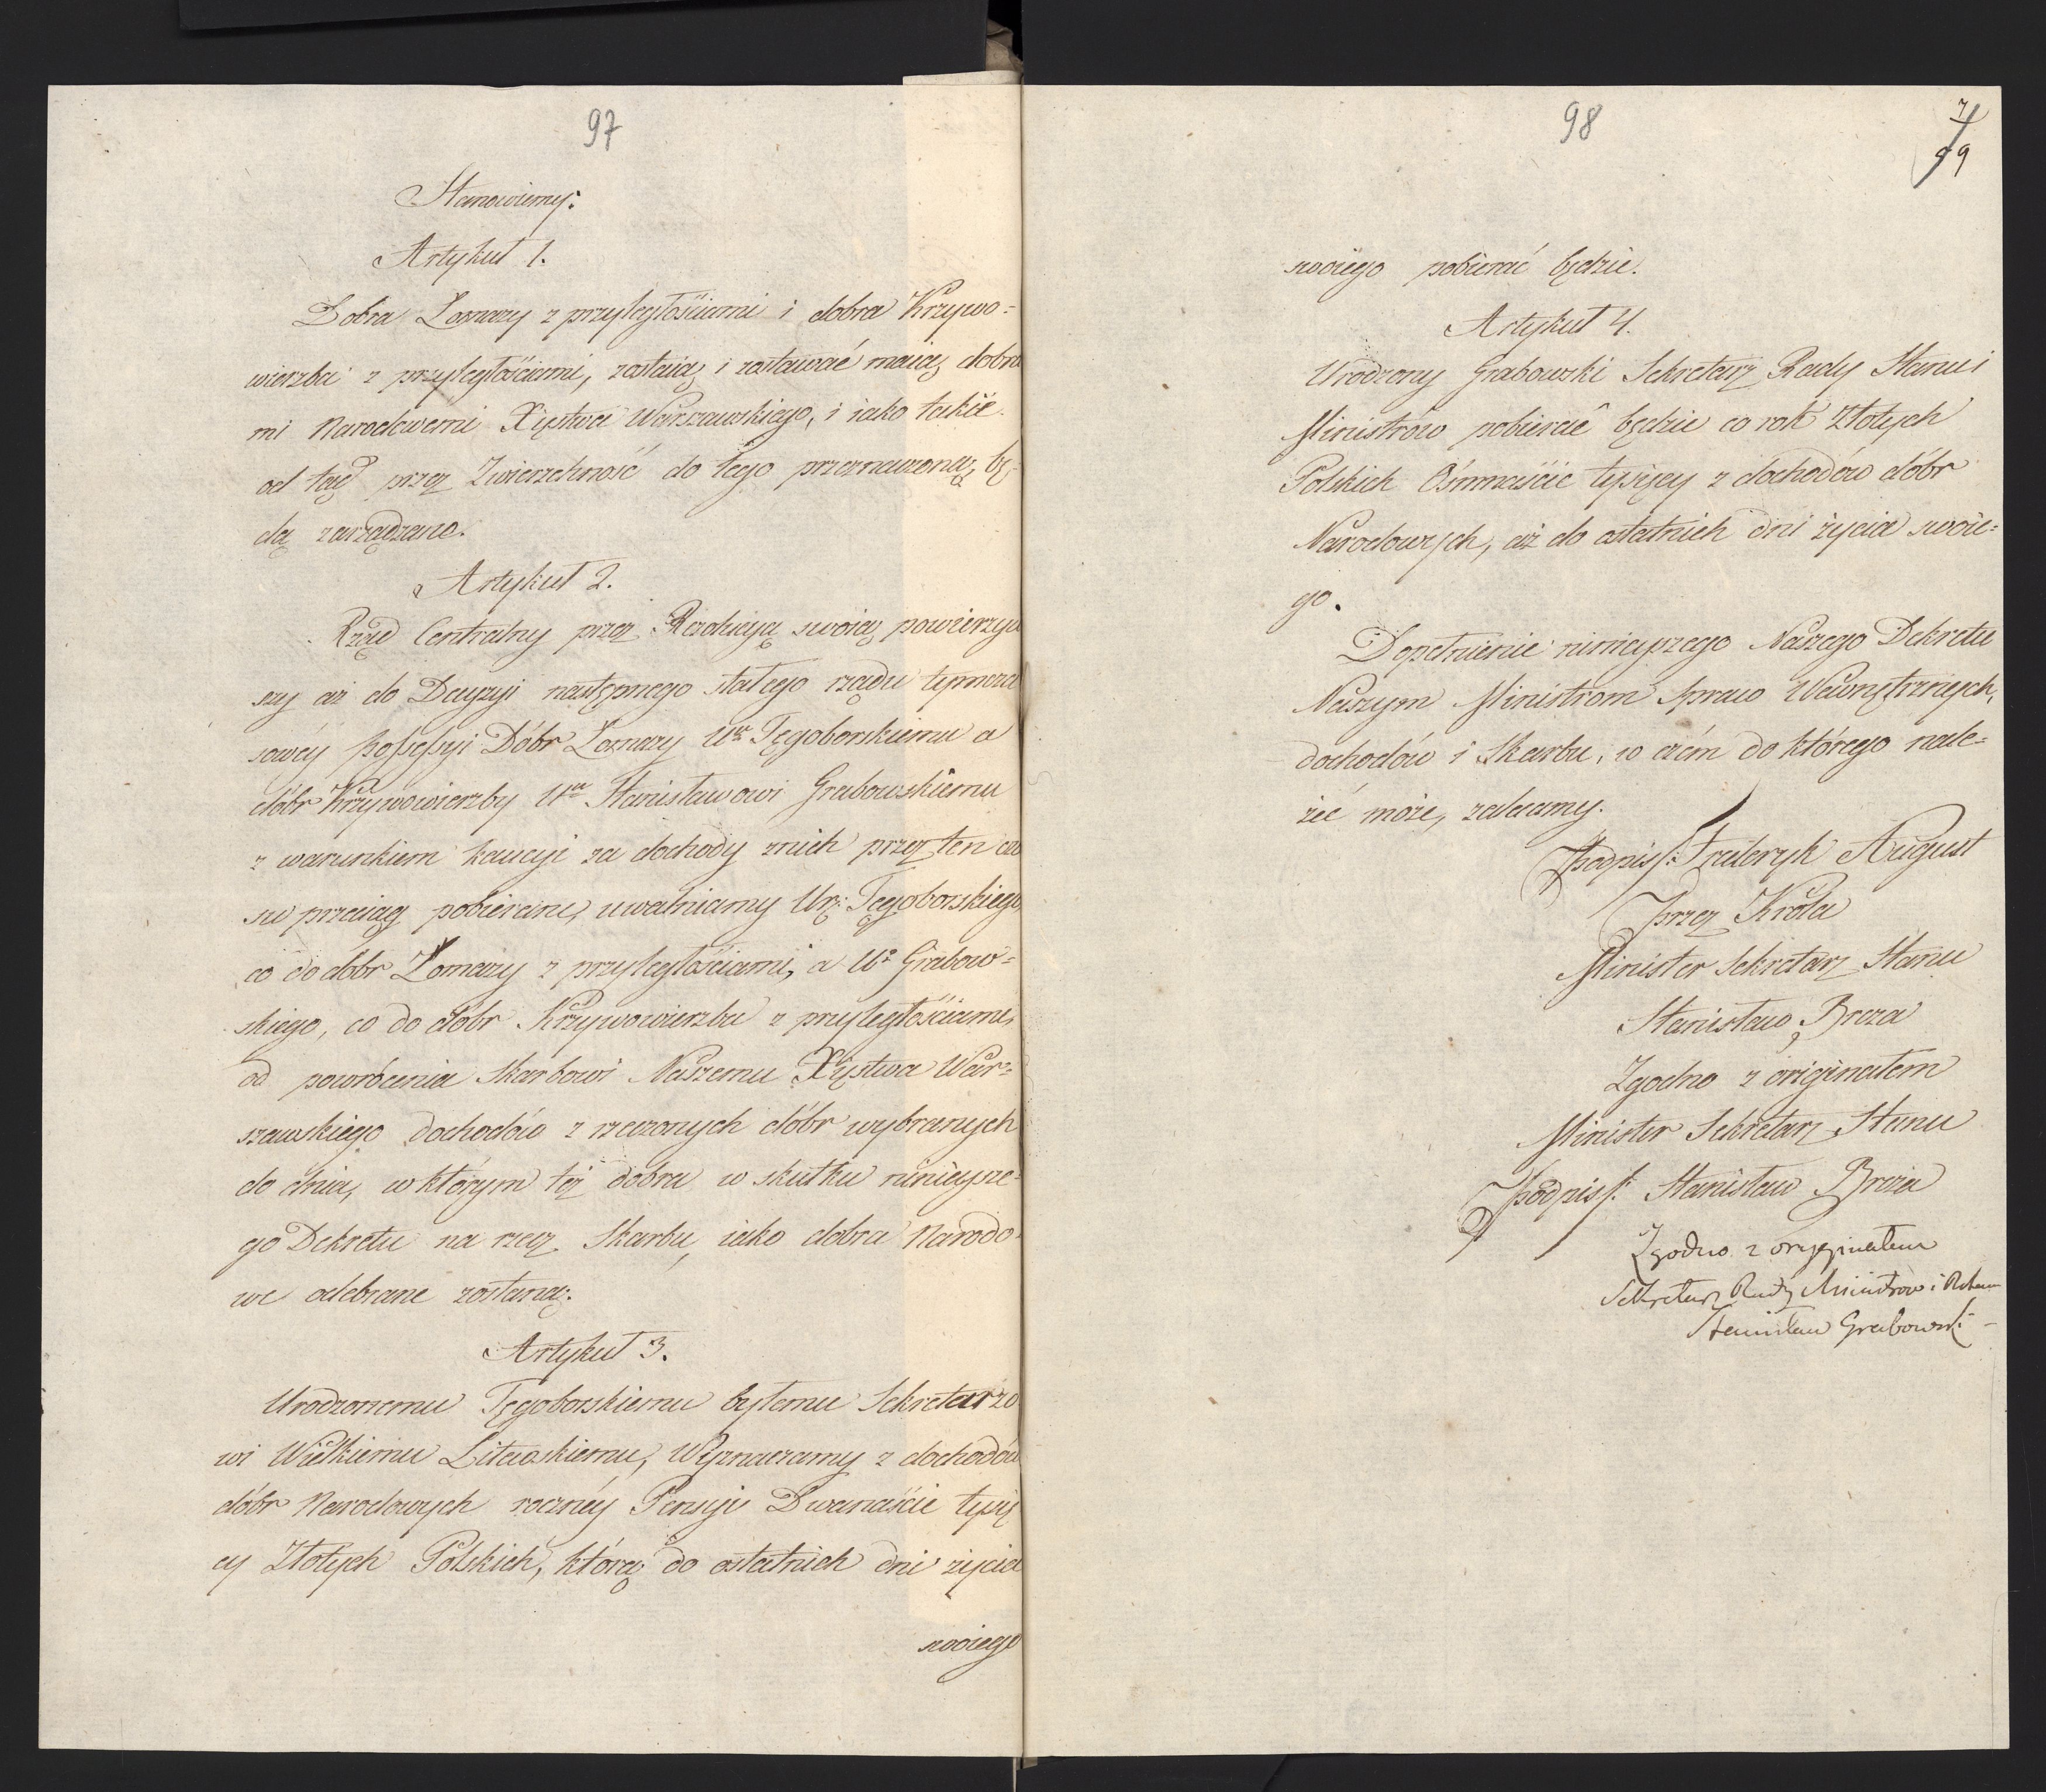 97
Stanowiemy:
Artykuł 1.
Dobra Łomazy z przyległościami i dobra Krzywo=
wierzba z przyległościami, zostaią i zostawać maią dobra
mi Narodowemi Xięstwa Warszawskiego, i iako takie
od tąd przez Zwierzchność do tego przeznaczoną bę
dą zarządzane.
Artykuł 2.
Rząd Centralny przez Rezolucyą swoią powierzyw
szy aż do Decyzyi następnego stałego rządu tymcza
sowéy Possessyi Dóbr Łomazy Ur Tęgoborskiemu a
dóbr Krzywowierzby Ur Stanisławowi Grabowskiemu
z warunkiem kaucyi za dochody z nich przez ten cza
su przeciąg pobierane, uwalniamy Ur: Tęgoborskiego
co do dóbr Łomazy z przyległościami, a Uo Grabow=
skiego, co do dóbr Krzywowierzba z przyległościami,
od powrócenia Skarbowi Naszemu Xięstwa War=
szawskiego dochodów z rzeczonych dóbr wybranych
do dnia, w którym też dobra w skutku ninieysze=
go Dekretu na rzecz Skarbu, iako dobra Narodo=
we odebrane zostaną.
Artykuł 3.
Urodzonemu Tęgoborskiemu byłemu Sekretarzo
wi Wielkiemu Litewskiemu, Wyznaczamy z dochodów
dóbr Narodowych rocznéy Pensyi Dwanaście tysię
cy Złotych Polskich, którą do ostatnich dni życia
swoiego
98
7
99
swoiego pobierać będzie.
Artykuł 4.
Urodzony Grabowski Sekretarz Rady Stanu i
Ministrów pobierać będzie co rok Złotych
Polskich Ośmnaście tysięcy z dochodów dóbr
Narodowych, aż do ostatnich dni życia swoie=
go.
Dopełnienie ninieyszego Naszego Dekretu
Naszym Ministrom Spraw Wewnętrznych,
dochodów i Skarbu, w czém do którego nale=
żeć może, zalecamy.
/podpis/: Fryderyk August
przez Króla
Minister Sekretarz Stanu
Stanisław Breza
Zgodno z originałem
Minister Sekretarz Stanu
/podpis/: Stanisław Breza
Zgodno z oryginałem
Sekretarz Rady Ministrow i
Stanisław Grabowski